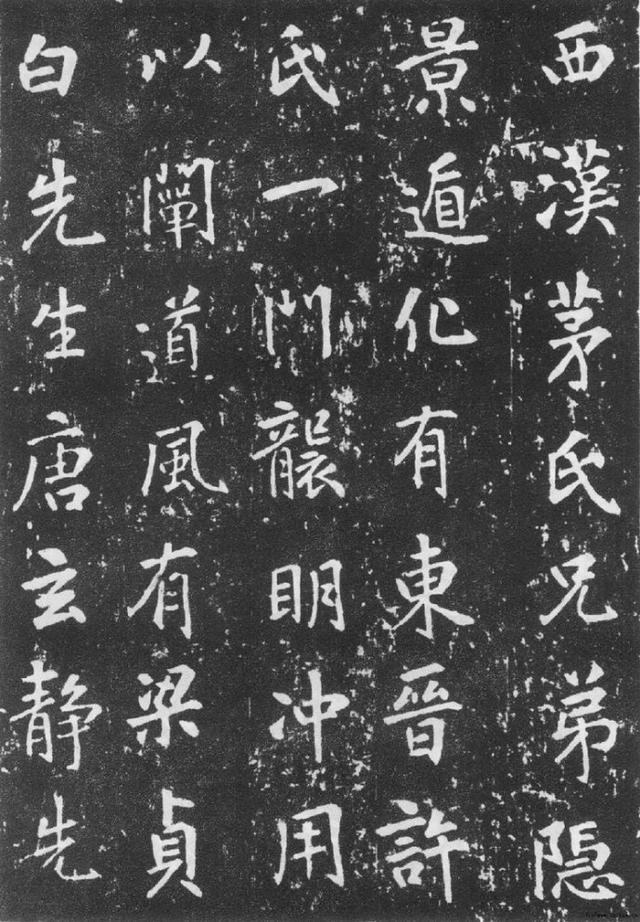 西漢茅氏兄弟隠
景遁化有東晉許
氏一門襲明冲用
以闡道風有梁貞
白先生唐玄静先